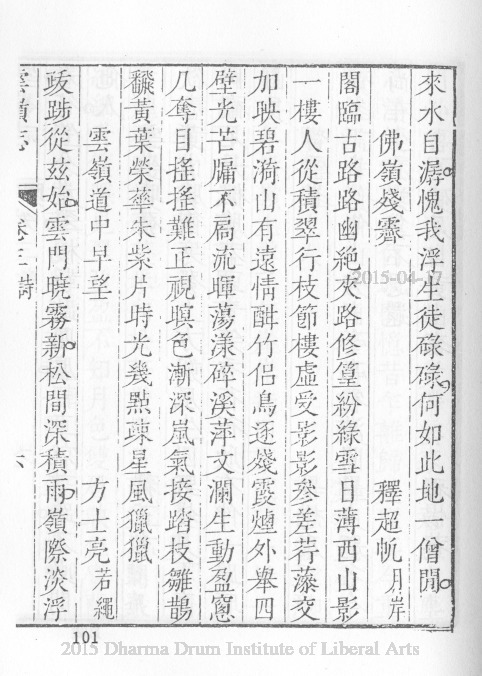 來水自潺愧我浮生徒碌碌何如此地一僧閒
佛嶺殘霽　釋超帆月岸
閣臨古路路幽絶夾路修篁紛綠雪日薄西山影
一樓人從積翠行枝節樓虛受影影參差荇藻交
加映碧漪山有遠情酣竹侶鳥逐殘霞墟外舉四
壁光芒牖不扃流暉蕩漾碎溪萍文瀾生動盈窻
几奪目搖搖難正視暝色漸深嵐氣接踏枝雛鵲
飜黃葉榮華朱紫片時光幾點疎星風獵獵
雲嶺道中早望　方士亮若繩
跋踄從玆始雲門曉霧新松間深積雨嶺際淡浮
雲嶺志　卷三詩　六
101
2015-04-17
2015 Dharma Drum Institute of Liberal Arts